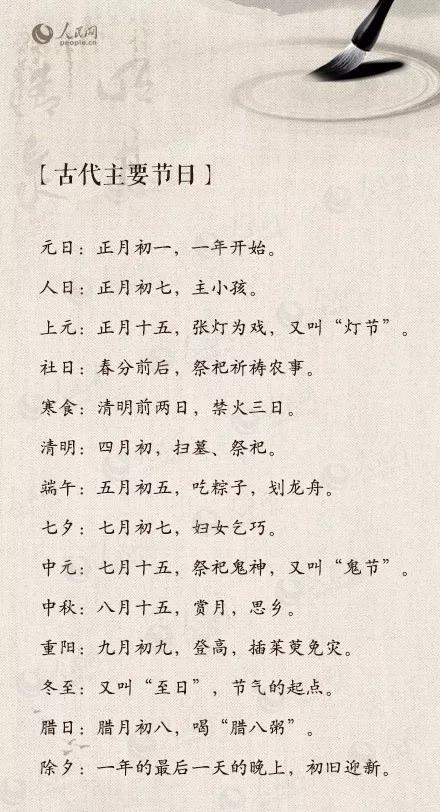 人民网
people.cn
【古代主要节日】
元日：正月初一，一年开始。
人日：正月初七，主小孩。
上元：正月十五，张灯为戏，又叫“灯节”。
社日：春分前后，祭祀祈祷农事。
寒食：清明前两日，禁火三日。
清明：四月初，扫墓、祭祀。
端午：五月初五，吃粽子，划龙舟。
七夕：七月初七，妇女乞巧。
中元：七月十五，祭祀鬼神，又叫“鬼节”。
中秋：八月十五，赏月，思乡。
重阳：九月初九，登高，插茱萸免灾。
冬至：又叫“至日”，节气的起点。
腊日：腊月初八，喝“腊八粥”。
除夕：一年的最后一天的晚上，初旧迎新。